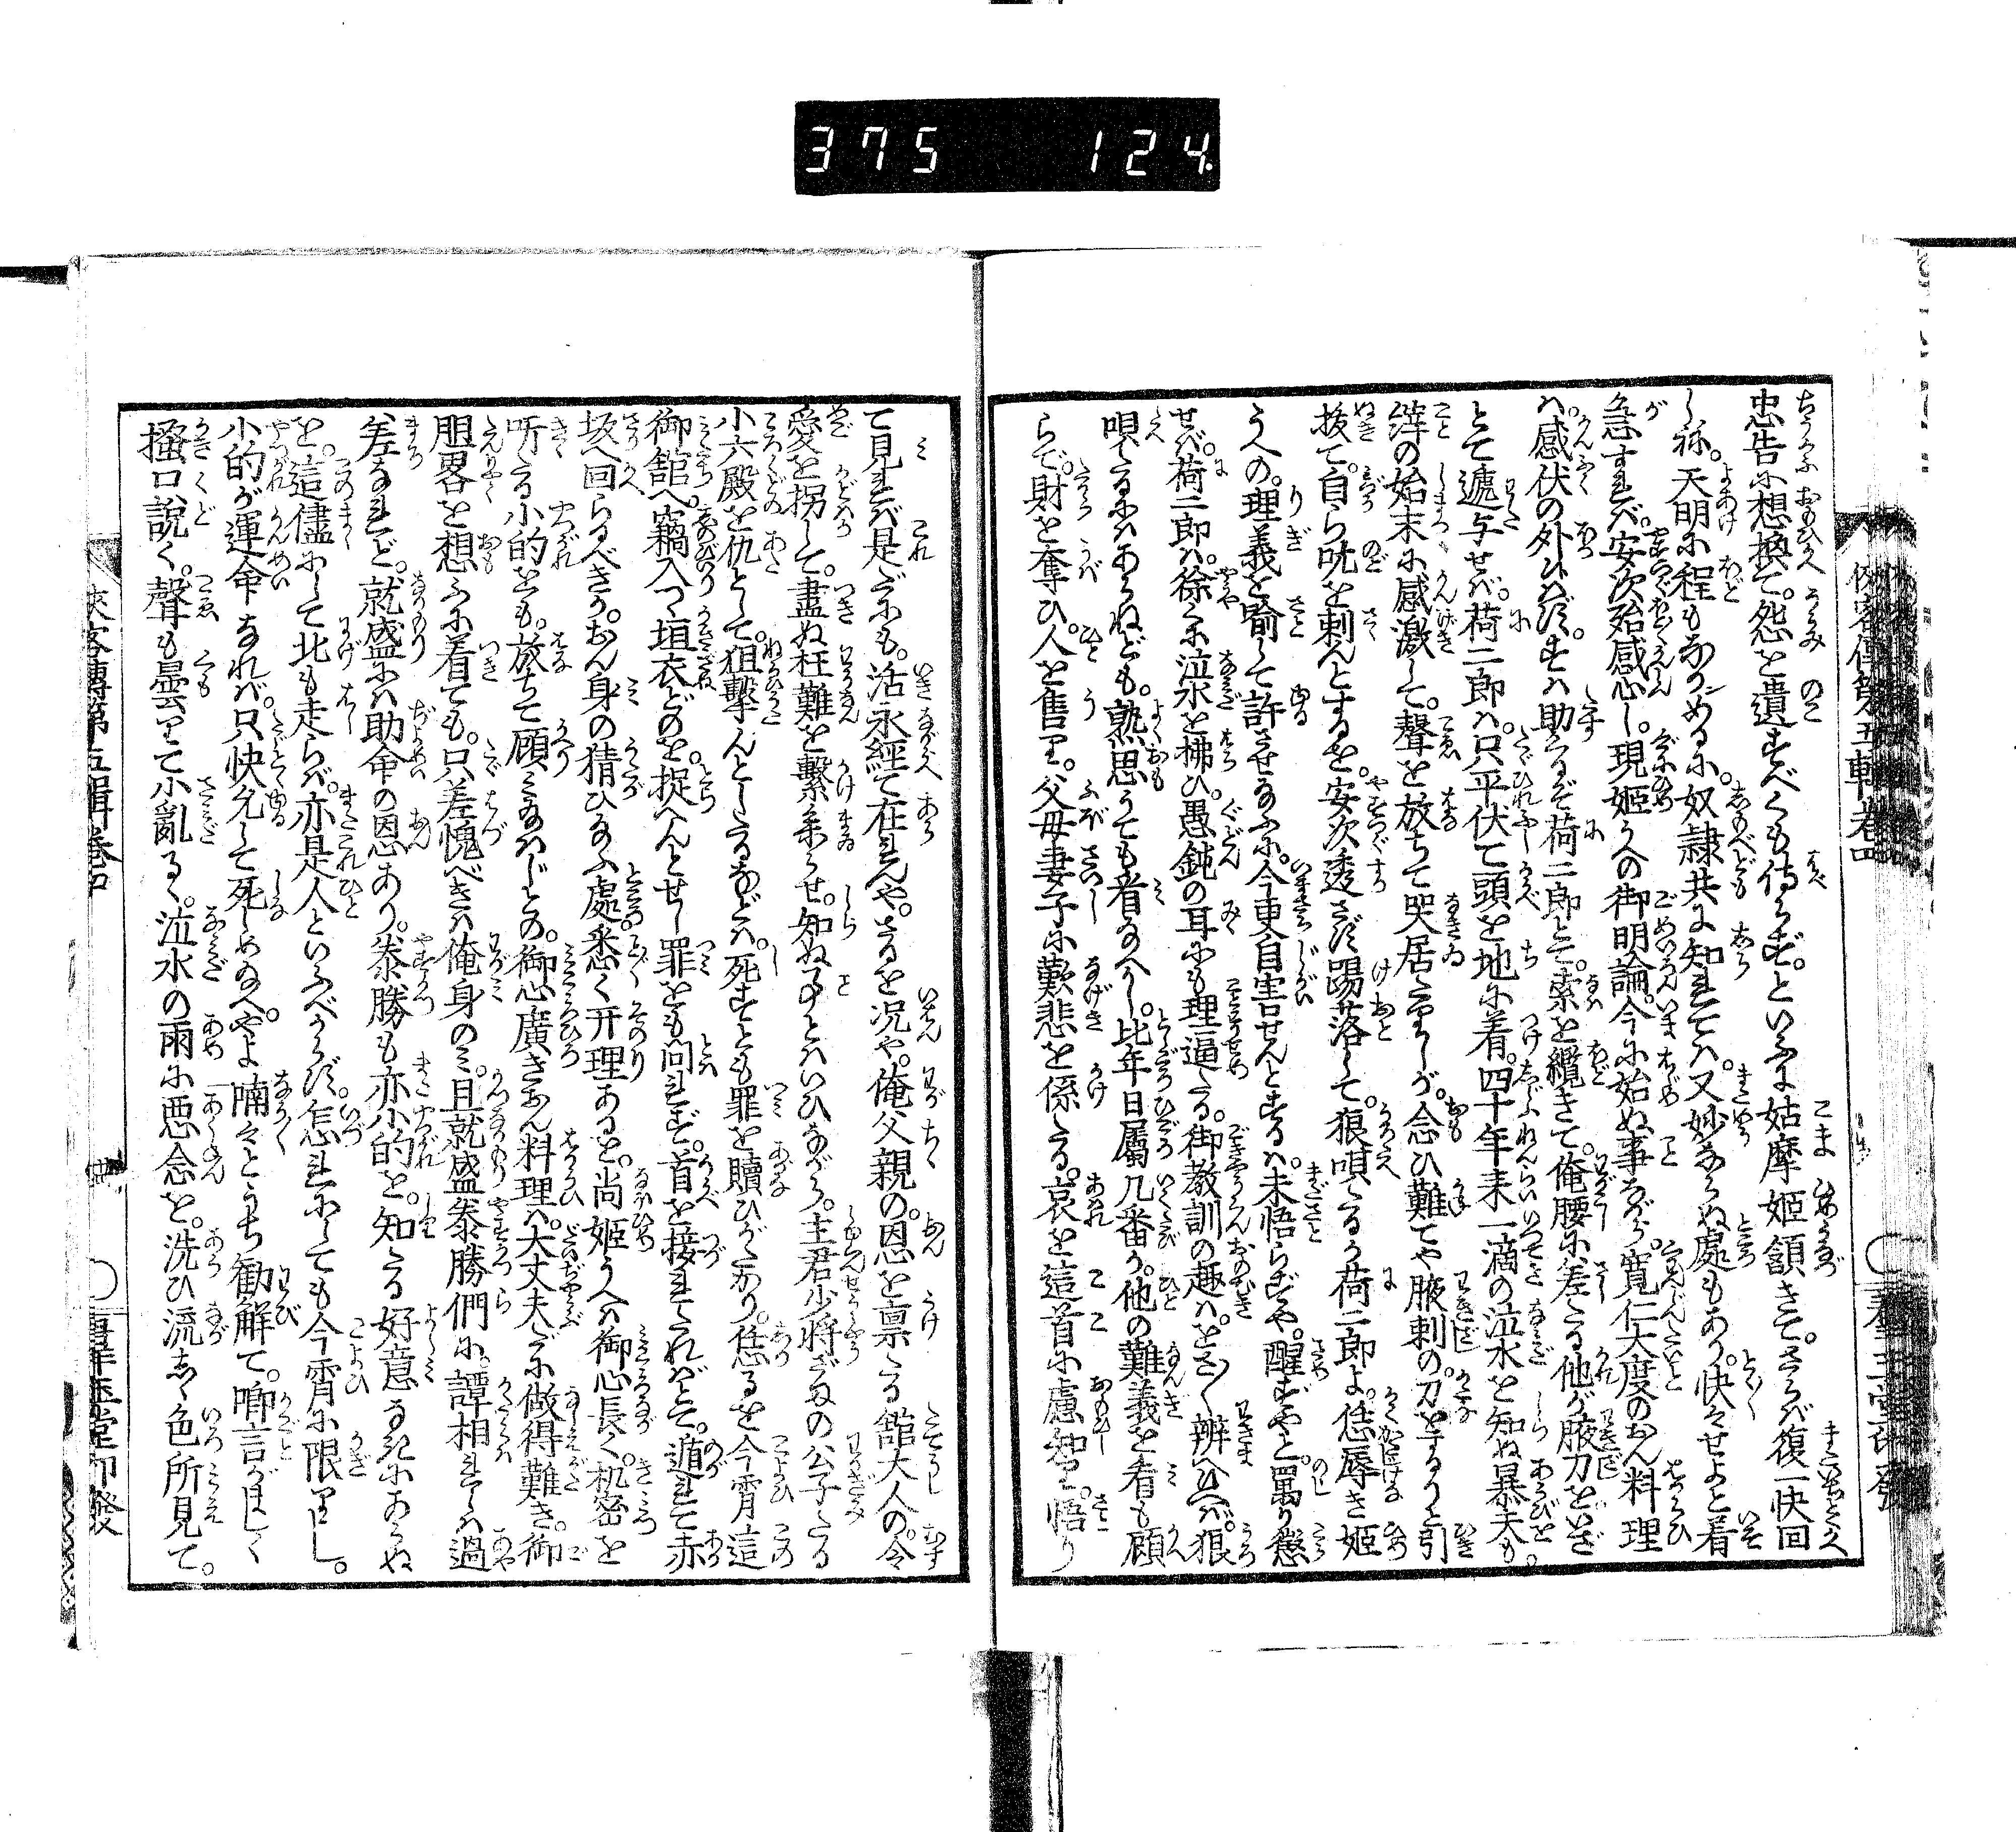 375 124
忠告に想換て。怨を遺すべくも侍らず。といふに姑摩姫頷きて。さらば復一快回
しね。天明に程もなかめるに。奴隷共に知れては。又妙ならぬ處もあり。快々せよと着
急すれば。安次殆感心し。現姫うへの御明論。今に始ぬ事ながら。寛仁大度のおん料理
は。感伏の外ひはず。すは助るぞ荷二郎とて。索を纜きて。俺腰に差たる他が腋刀をいざ
とて遞与せば。荷二郎は。只平伏て頭を地に着。四十年来一滴の泣水を知ぬ暴夫も。
縡の始末に感激して。聲を放ちて哭居たりしが。念ひ難てや腋刺の。刀をするりと引
抜て。自ら吭を刺んとするを。安次透さず踢落して。狼唄たるか荷二郎よ。恁辱き姫
うへの。理義を喩して許させ給ふに。今更自害せんとするは。未悟らずや。醒ずやと。罵り懲
せば。荷二郎は。徐に泣水を拂ひ。愚鈍の耳にも理逼たる。御教訓の趣は。をさ〳〵辨へひへば。狼
唄たるにはあらねども。熟思うても看給へかし。比年日屬几番か。他の難義を看も顧
らで。財を奪ひ。人を售り。父母妻子に歎悲を係たる。哀を這首に慮知り。悟り
て見れば是だにも。活永經て在れんや。さるを況や。俺父親の。恩を禀たる舘大人の。令
愛を拐して。盡ぬ枉難を繋累らせ。知ぬ事とはいひながら。主君少將ざまの公子たる
小六殿を仇として。狙撃んとしたるなどは。死すとも罪を贖ひがたかり。恁るを今霄這
御舘へ。竊入つ垣衣どのを。捉へんとせし罪をも問れず。首を接れたればとて。遁れて赤
坂へ回らるべきか。おん身の猜ひ給ふ處。悉く理あるを。尚姫うへは御心長く。机密を
听たる小的をも。放ちて顧み給はじとの。御心廣きおん料理は。大丈夫だに做得難き。御
胆畧を想ふに着ても。只羞愧べきは俺身のみ。且就盛泰勝們に。譚相れしは過
差なれど。就盛には助命の恩あり。泰勝も亦小的を。知たる好意なきにあらぬ
を。這儘にして北も走らば。亦是人といふべからず。怎れにしても今霄に限りし。
小的が運命なれば。只快允して死しめ給へ。やよ喃々とうち勸解て。啣言がましく
掻口說く。聲も曇りて小亂るゝ。泣水の雨に悪念を。洗ひ流しゝ色所見て。